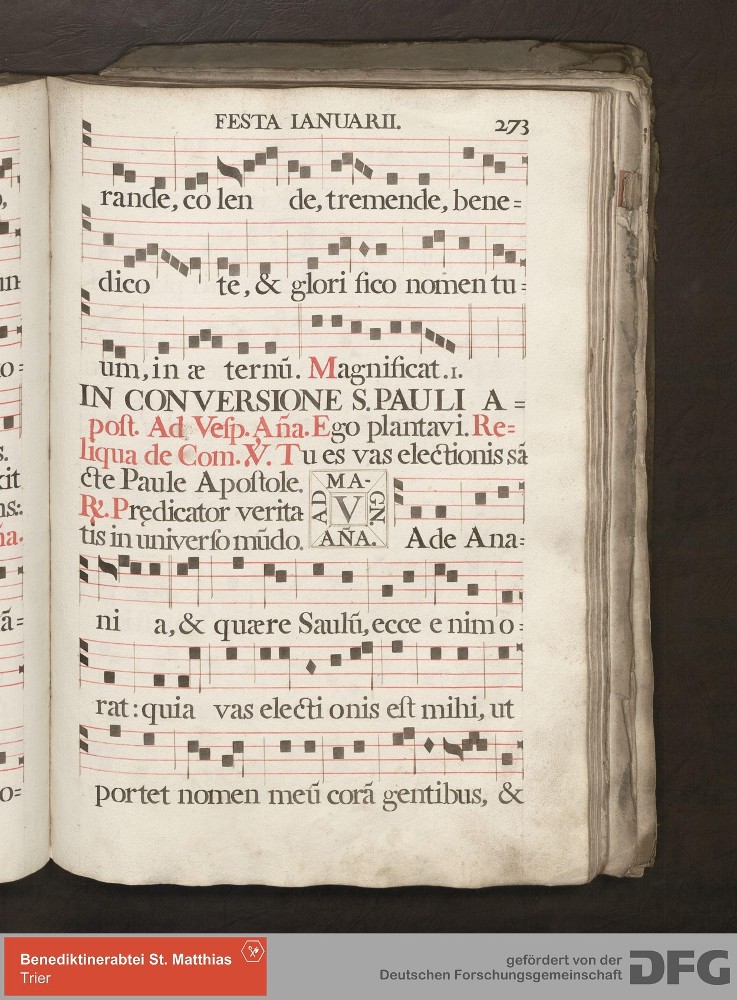 FESTA IANUARII. 273
rande, co len de, tremende, bene=
dico te, & glori fico nomen tu=
um, in æ ternũ. Magnificat .1.
IN CONVERSIONE S. PAULI A=
post. Ad Vesp. Aña. Ego plantavi. Re=
liqua de Com. V. Tu es vas electionis sã
cte Paule Apostole.
R. Prędicator verita
tis in universo mũdo.
AD MAGN. AÑA.
V
Ade Ana=
ni a, & quære Saulũ, ecce e nim o=
rat: quia vas electi onis est mihi, ut
portet nomen meũ corã gentibus, &
Benediktinerabtei St. Matthias
Trier
gefördert von der
Deutschen Forschungsgemeinschaft
DFG